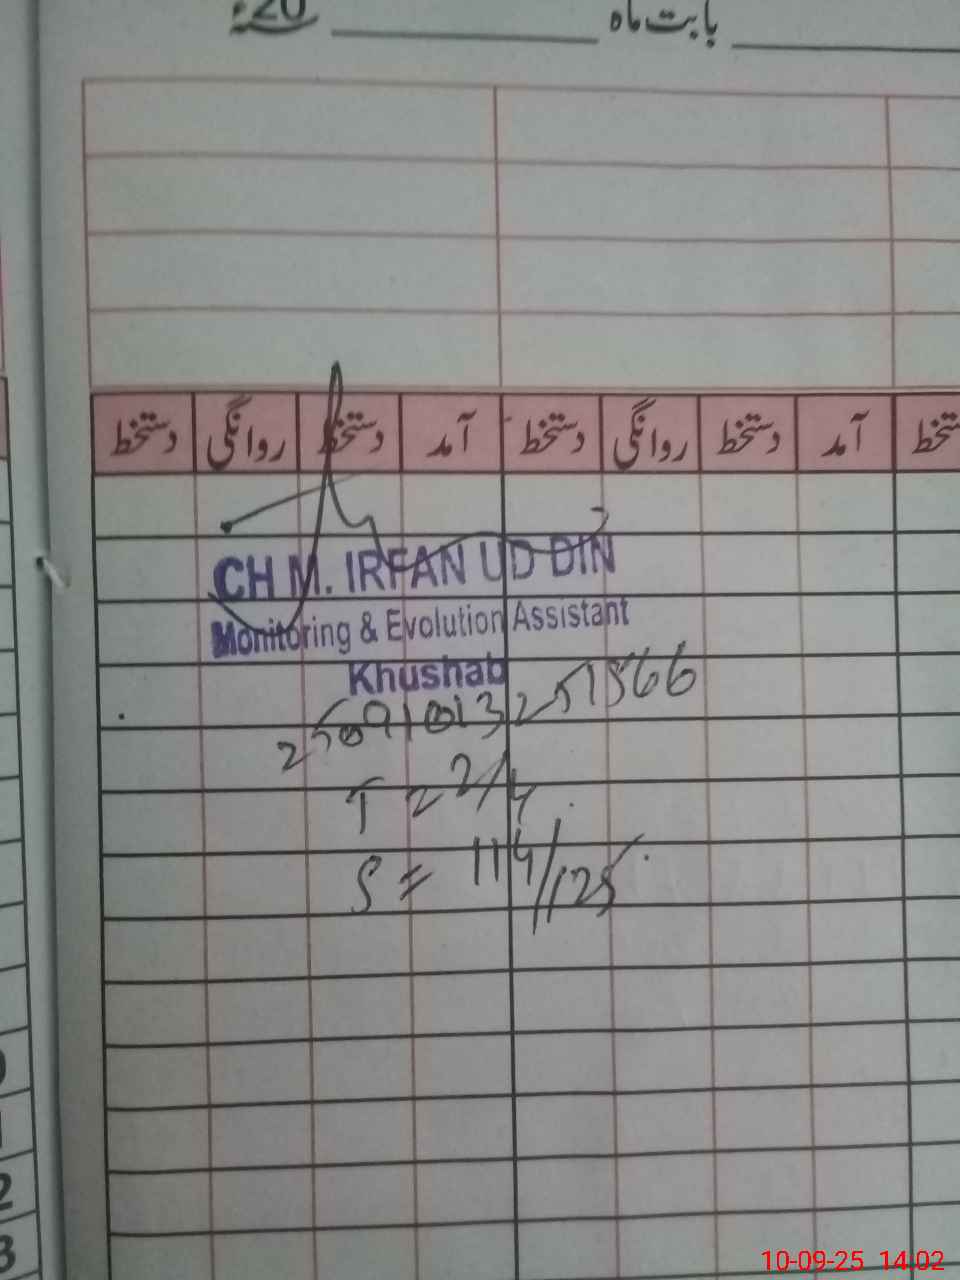 بابت ماہ 20ء
دستخط روانگی دستخط آمد دستخط روانگی دستخط آمد دستخط
CH M. IRFAN UD DIN
Monitoring & Evolution Assistant
Khushab
T = 2/4
S = 114/125
10-09-25 14:02